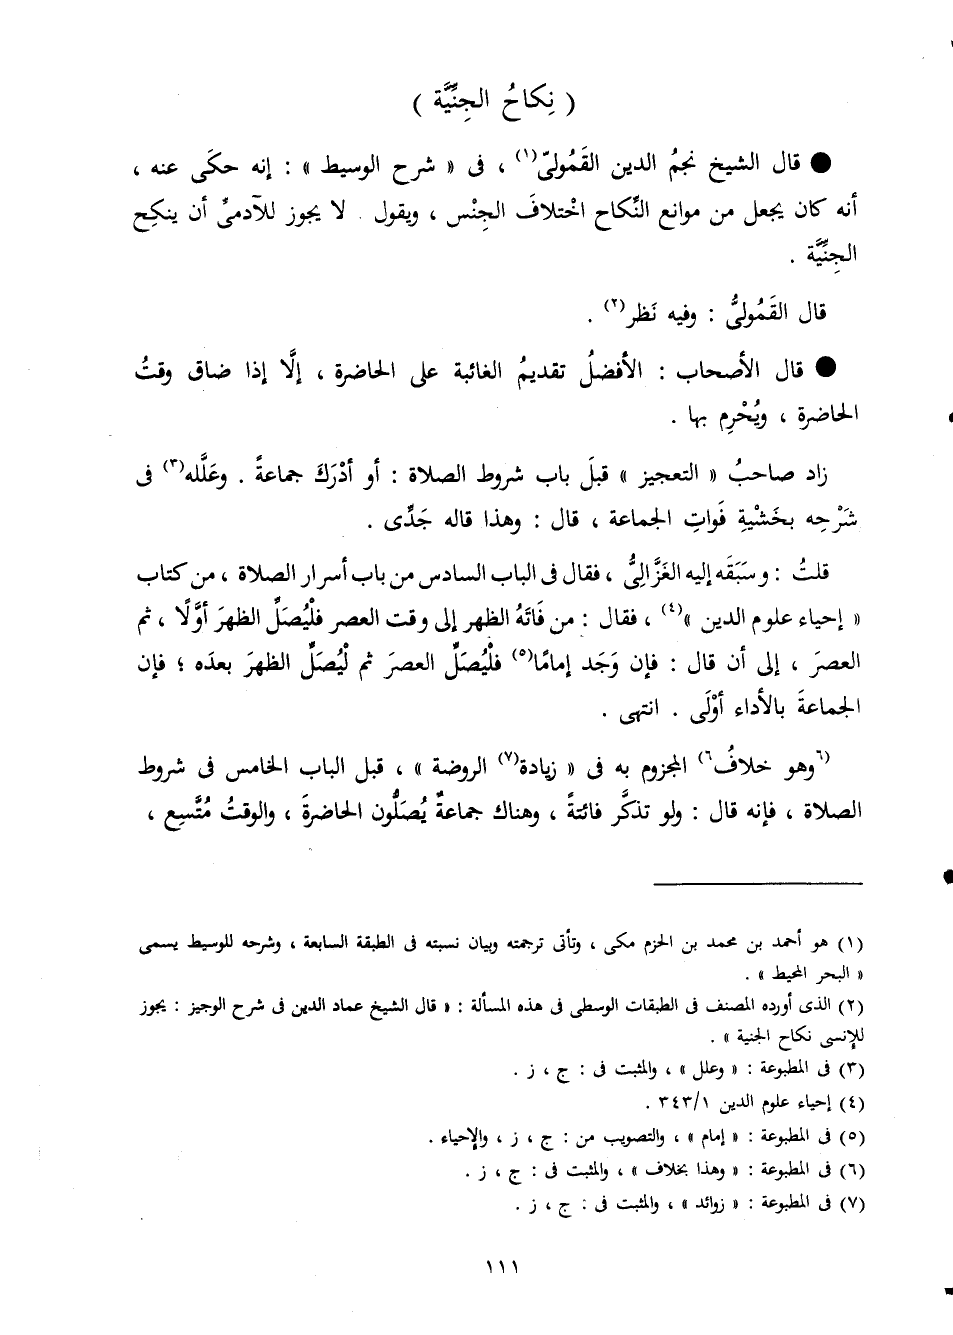 ( نِكاحُ الجِنِّيَّة )
● قال الشيخ نجمُ الدين القَمُولىّ(١) ، فى « شرح الوسيط » : إنه حكَى عنه ،
أنه كان يجعل من موانع النِّكاح اختلافَ الجِنْس ، ويقول . لا يجوز للآدمىِّ أن ينكِح
الجِنِّيَّة .
قال القَمُولىُّ : وفيه نَظر(٢) .
● قال الأصحاب : الأفضلُ تقديمُ الغائبة على الحاضرة ، إلَّا إذا ضاق وقتُ
الحاضرة ، ويُحْرِم بها .
زاد صاحبُ « التعجيز » قبلَ باب شروط الصلاة : أو أدْرَكَ جماعةً . وعَلَّله(٣) فى
شَرْحِه بخَشْيةِ فَواتِ الجماعة ، قال : وهذا قاله جَدِّى .
قلتُ : وسَبَقَه إليه الغَزَّالِىُّ ، فقال فى الباب السادس من باب أسرار الصلاة ، من كتاب
« إحياء علوم الدين »(٤) ، فقال : من فَاتَهُ الظهر إلى وقت العصر فلْيُصَلِّ الظهرَ أوَّلًا ، ثم
العصرَ ، إلى أن قال : فإن وَجَد إمامًا(٥) فلْيُصَلِّ العصرَ ثم لْيُصَلِّ الظهرَ بعدَه ؛ فإن
الجماعةَ بالأداء أوْلَى . انتهى .
(٦وهو خلافُ٦) المجزوم به فى « زيادة(٧) الروضة » ، قبل الباب الخامس فى شروط
الصلاة ، فإنه قال : ولو تذكَّر فائتةً ، وهناك جماعةٌ يُصَلُّون الحاضرةَ ، والوقتُ مُتَّسِع ،
(١) هو أحمد بن محمد بن الحزم مكى ، وتأتى ترجمته وبيان نسبته فى الطبقة السابعة ، وشرحه للوسيط يسمى
« البحر المحيط » .
(٢) الذى أورده المصنف فى الطبقات الوسطى فى هذه المسألة : « قال الشيخ عماد الدين فى شرح الوجيز : يجوز
للإنسى نكاح الجنية » .
(٣) فى المطبوعة : « وعلل » ، والمثبت فى : ج ، ز .
(٤) إحياء علوم الدين ٣٤٣/١ .
(٥) فى المطبوعة : « إمام » ، والتصويب من : ج ، ز ، والإحياء .
(٦) فى المطبوعة : « وهذا بخلاف » ، والمثبت فى : ج ، ز .
(٧) فى المطبوعة : « زوائد » ، والمثبت فى : ج ، ز .
١١١